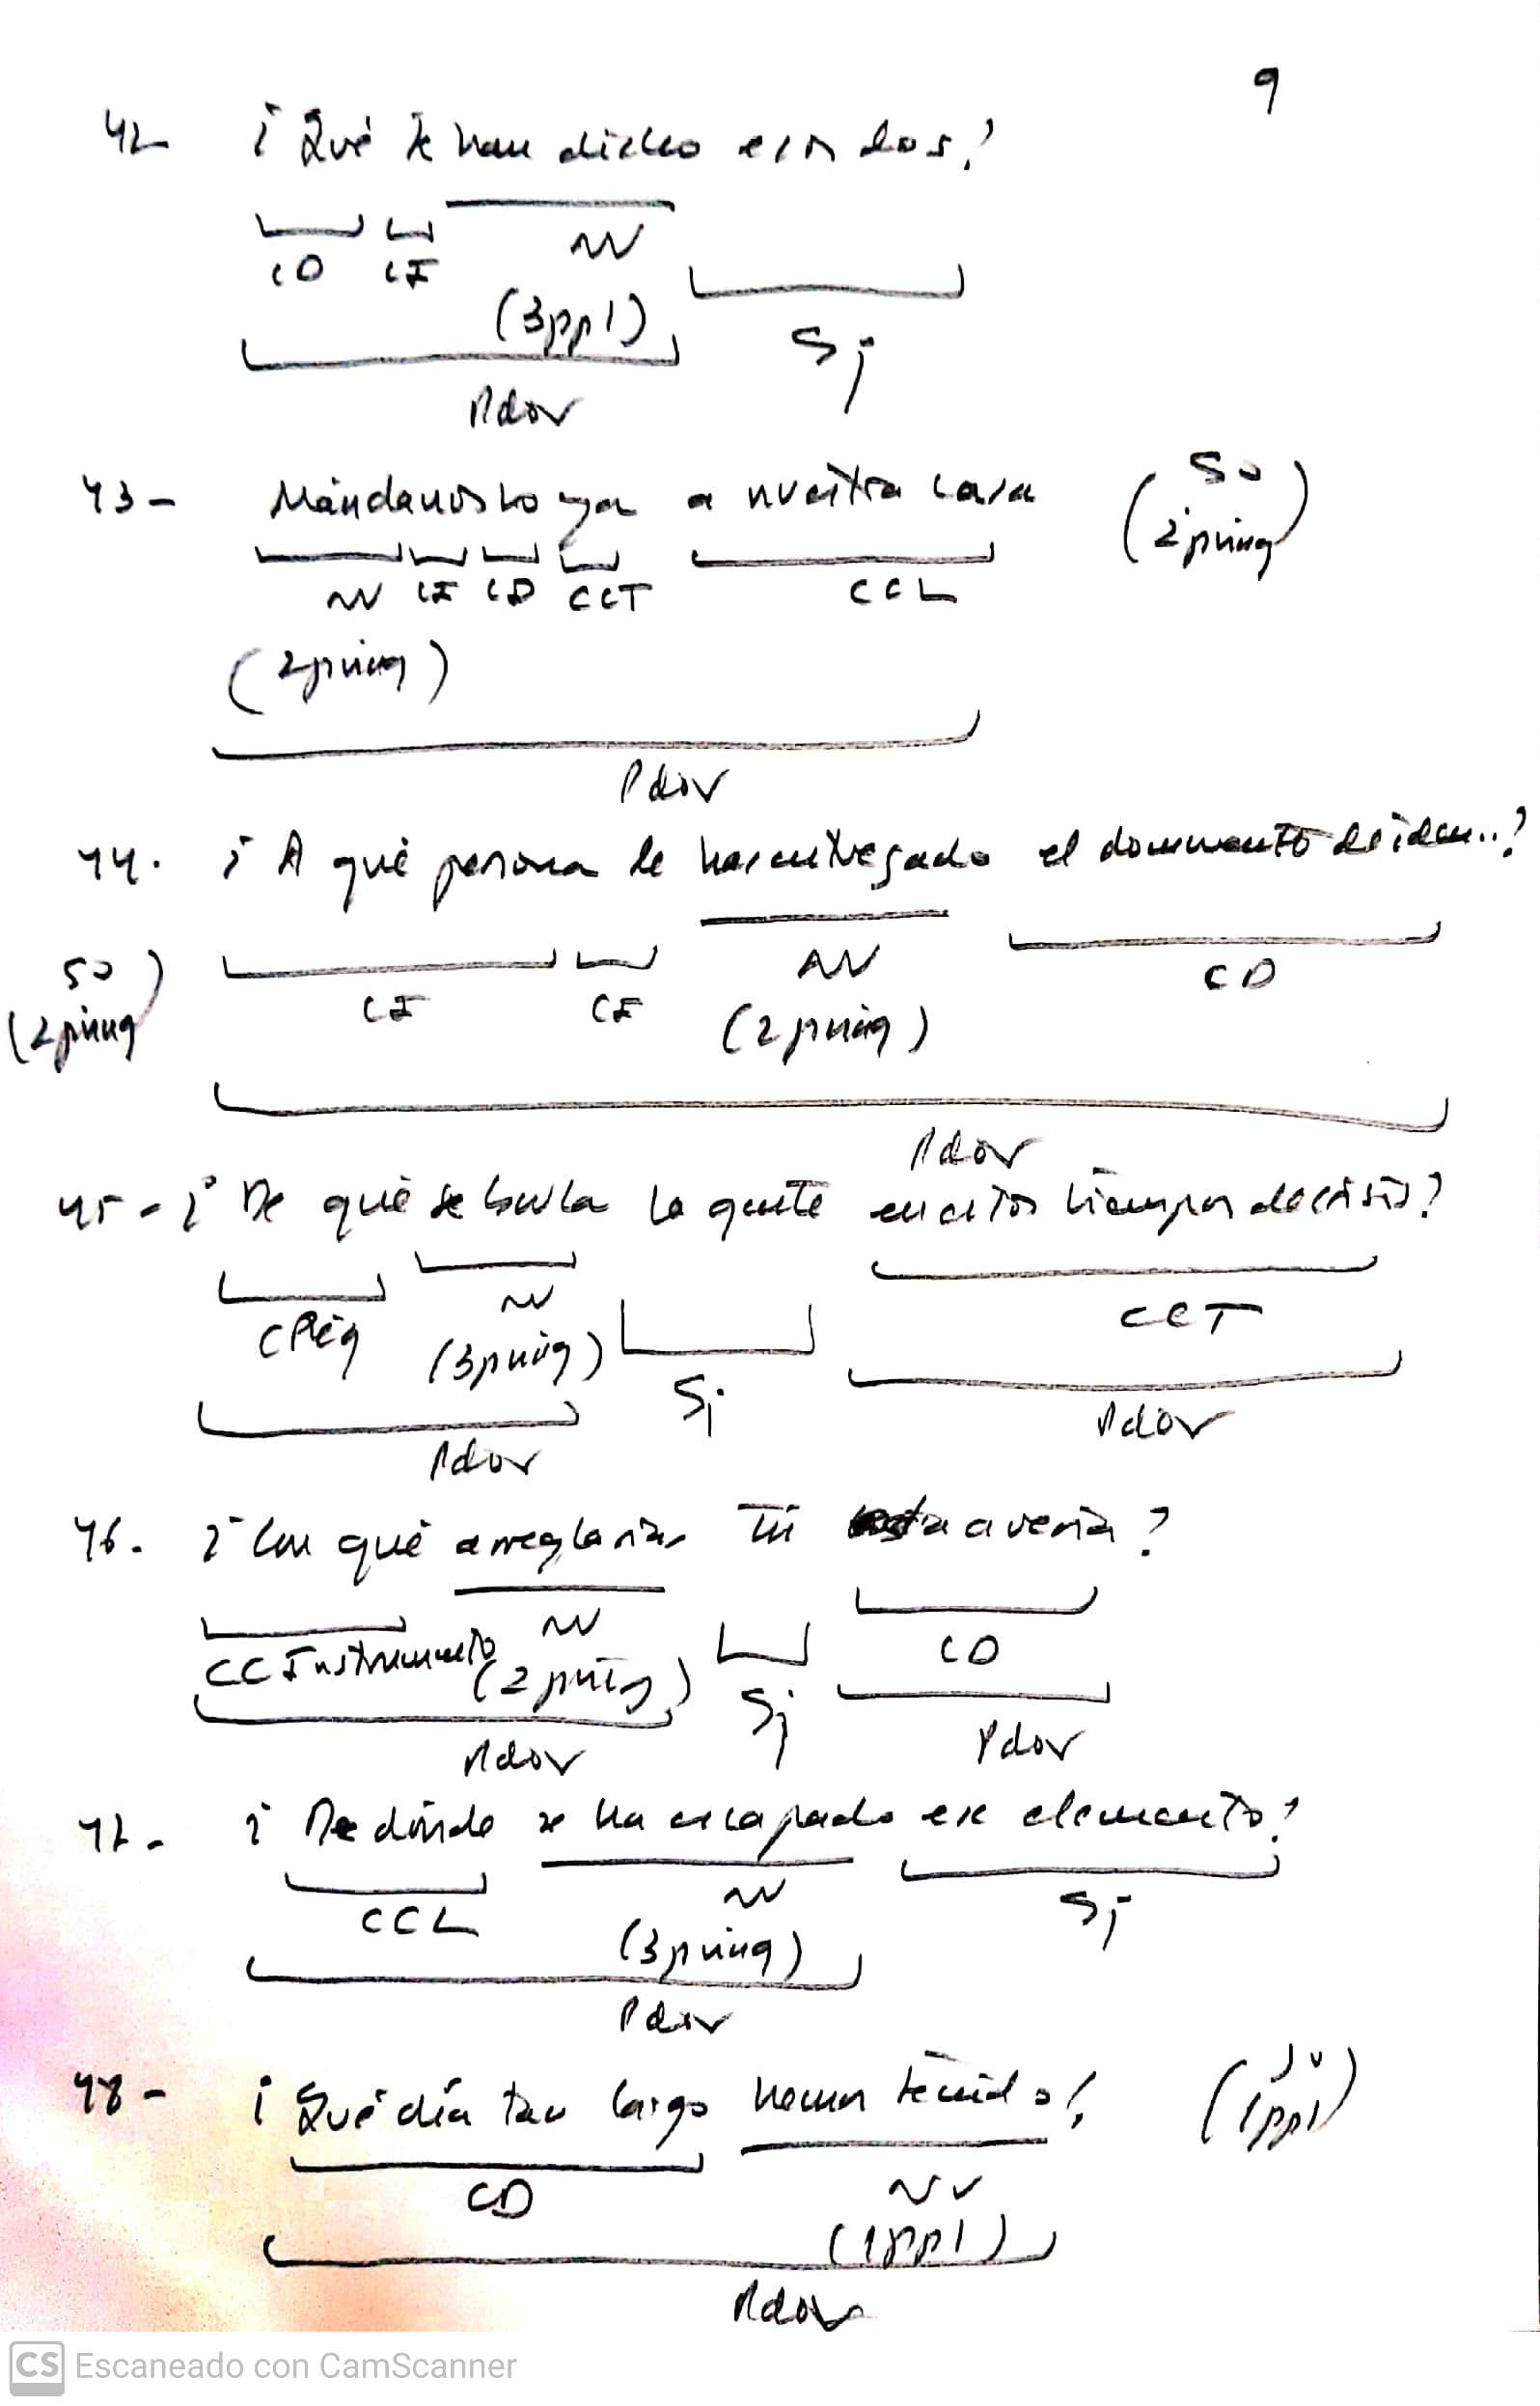 9
42 ¿Qué te han dicho esos dos?
CD CI NV
(3ppl) Sj
Pdov
43- Mándanoslo ya a nuestra casa (SO
NV CI CD CCT CCL 2ªpsing)
(2psing)
Pdov
44. ¿A qué persona le has entregado el documento de iden..?
SO CI CI NV CD
(2psing) (2psing)
Pdov
45-¿De qué se burla la gente en estos tiempos de crisis?
CRég NV CCT
(3psing) Sj
Pdov Pdov
46. ¿Con qué arreglarías tú esta avería?
CC Instrumento NV CD
(2psing) Sj
Pdov Pdov
47- ¿De dónde se ha escapado ese elemento?
CCL NV Sj
(3psing)
Pdov
48- ¡Qué día tan largo hemos tenido!
CD NV (1ppl)
(1ppl)
Pdov
CS Escaneado con CamScanner